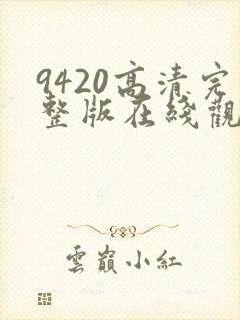 9420高清完
整版在綫觀
雲巔小紅